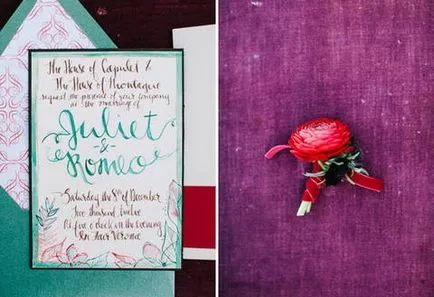 The House of Capulet &
The House of Montague
request the presence of your company
at the marriage of
Juliet
&
Romeo
Saturday the 8th of December
two thousand twelve
At five o'clock in the evening
In Fair Verona